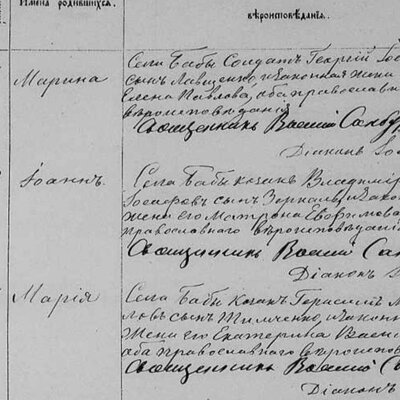 Имена родившихся.
вѣроисповѣданія.
Марина
Села Бабы Солдатъ Георгій
сынъ Лавценко и законная жена
Елена Павлова, оба православнаго
вѣроисповѣданія
Священникъ Василій
Діаконъ
Іоаннъ.
Села Бабы козакъ Владиміръ
Іосифовъ сынъ и
жена его Матрона Евфимова
православнаго вѣроисповѣданія
Священникъ Василій
Діаконъ
Марія
Села Бабы козакъ Герасимъ
сынъ Тимченко, и законная
жена его Екатерина
оба православнаго вѣроиспов
Священникъ Василій
Діаконъ